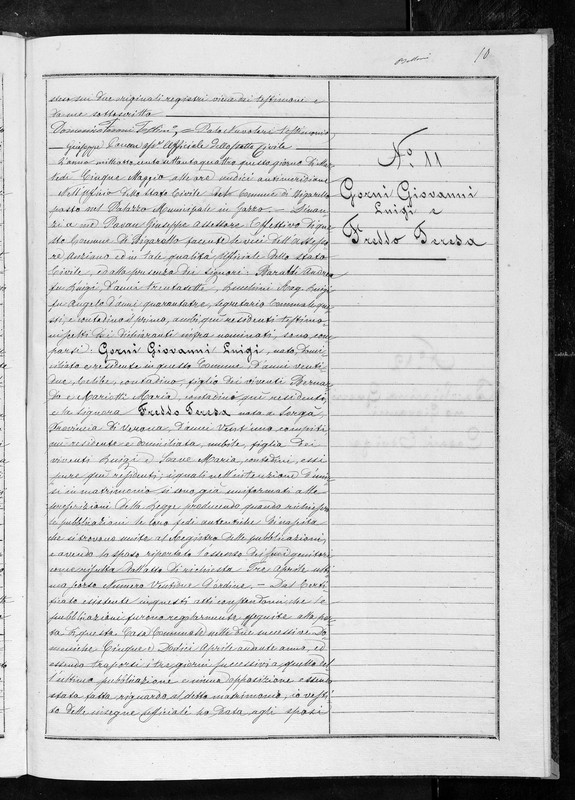 10
steso sui due originali registri viene dai testimoni e
da me sottoscritto
Giuseppe Ufficiale dello Stato Civile
L'anno milleottocentosettantaquattro questo giorno di Mar-
tedì Cinque Maggio alle ore undici antimeridiane
Nell'Ufficio dello Stato Civile del Comune di Bigarello
posto nel Palazzo Municipale in Gazzo. — Dinan-
zi a me Pavan Giuseppe Assessore Effettivo di que-
sto Comune di Bigarello facente le veci dell'Assesso-
re Anziano ed in tale qualità Ufficiale dello Stato
Civile, ed alla presenza dei signori Baratti Andrea
fu Luigi, d'anni trentasette, Rag. Luigi
fu Angelo d'anni quarantatre, segretario Comunale que-
sti, e contadino il primo, ambi qui residenti testimo-
ni dichiaranti infra nominati, sono com-
parsi. Gorni Giovanni Luigi, nato, domi-
ciliato e residente in questo Comune, d'anni venti-
due, Celibe, contadino, figlio dei viventi Berna-
do e Mariotti Maria, contadini qui residenti,
e la signora Freddo Teresa nata a Sorgà
Provincia di Verona, d'anni Vent'uno compiti
qui residente e domiciliata, nubile, figlia dei
viventi Luigi e Maria, contadini, essi
pure qui residenti; i quali nell'intenzione d'unir-
si in matrimonio si sono già uniformati alle
prescrizioni della Legge producendo quando richiesero
le pubblicazioni le loro fedi autentiche di nascita
che si trovano unite al Registro delle pubblicazioni,
e avendo lo sposo riportato l'assenso dei suoi genitori
come risulta dall'atto di richiesta Tre Aprile ulti-
mo scorso Numero d'ordine. — Dal Certi-
ficato esistente in questi atti constandomi che le
pubblicazioni furono regolarmente eseguite alla por-
ta di questa Casa Comunale nelle due successive Do-
meniche Cinque e Dodici Aprile andante anno, ed
essendo trascorsi i tre giorni successivi a quello del-
l'ultima pubblicazione e niuna opposizione essendo
stata fatta riguardo al detto matrimonio, io vesti-
to delle insegne ufficiali ho data agli sposi
N.º 11
Gorni Giovanni
Luigi e
Freddo Teresa